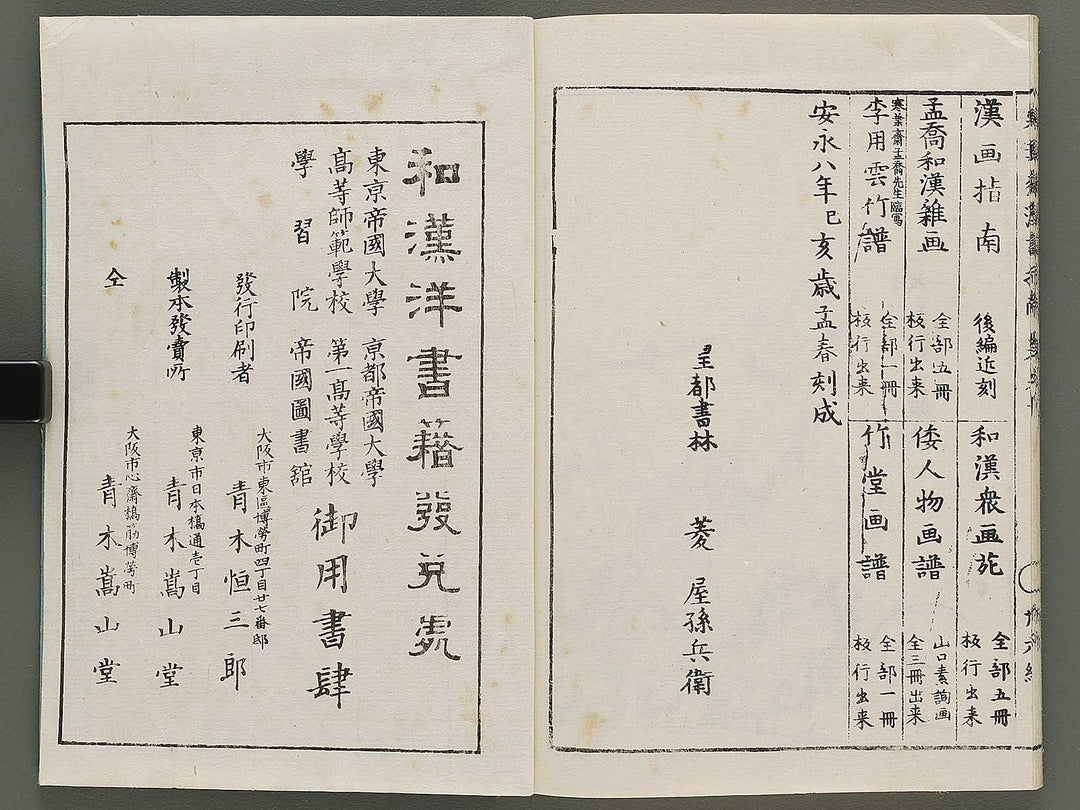 漢画指南 後編近刻
和漢衆画苑 全部五冊 板行出来
孟喬和漢雜画 全部五冊 板行出来
倭人物画譜 山口素詢画 全三冊出来
寒葉齋孟喬先生臨寫
李用雲竹譜 全部一冊 板行出来
竹堂画譜 全部一冊 板行出来
安永八年已亥歳孟春刻成
皇都書林 菱屋孫兵衛
和漢洋書籍發兌處
東京帝國大學 京都帝國大學
高等師範學校 第一高等學校
學習院 帝國圖書舘
御用書肆
發行印刷者
大阪市東區博勞町四丁目廿七番邸
青木恒三郎
製本發賣所
東京市日本橋通壱丁目
青木嵩山堂
仝
大阪市心齋橋筋博勞町
青木嵩山堂